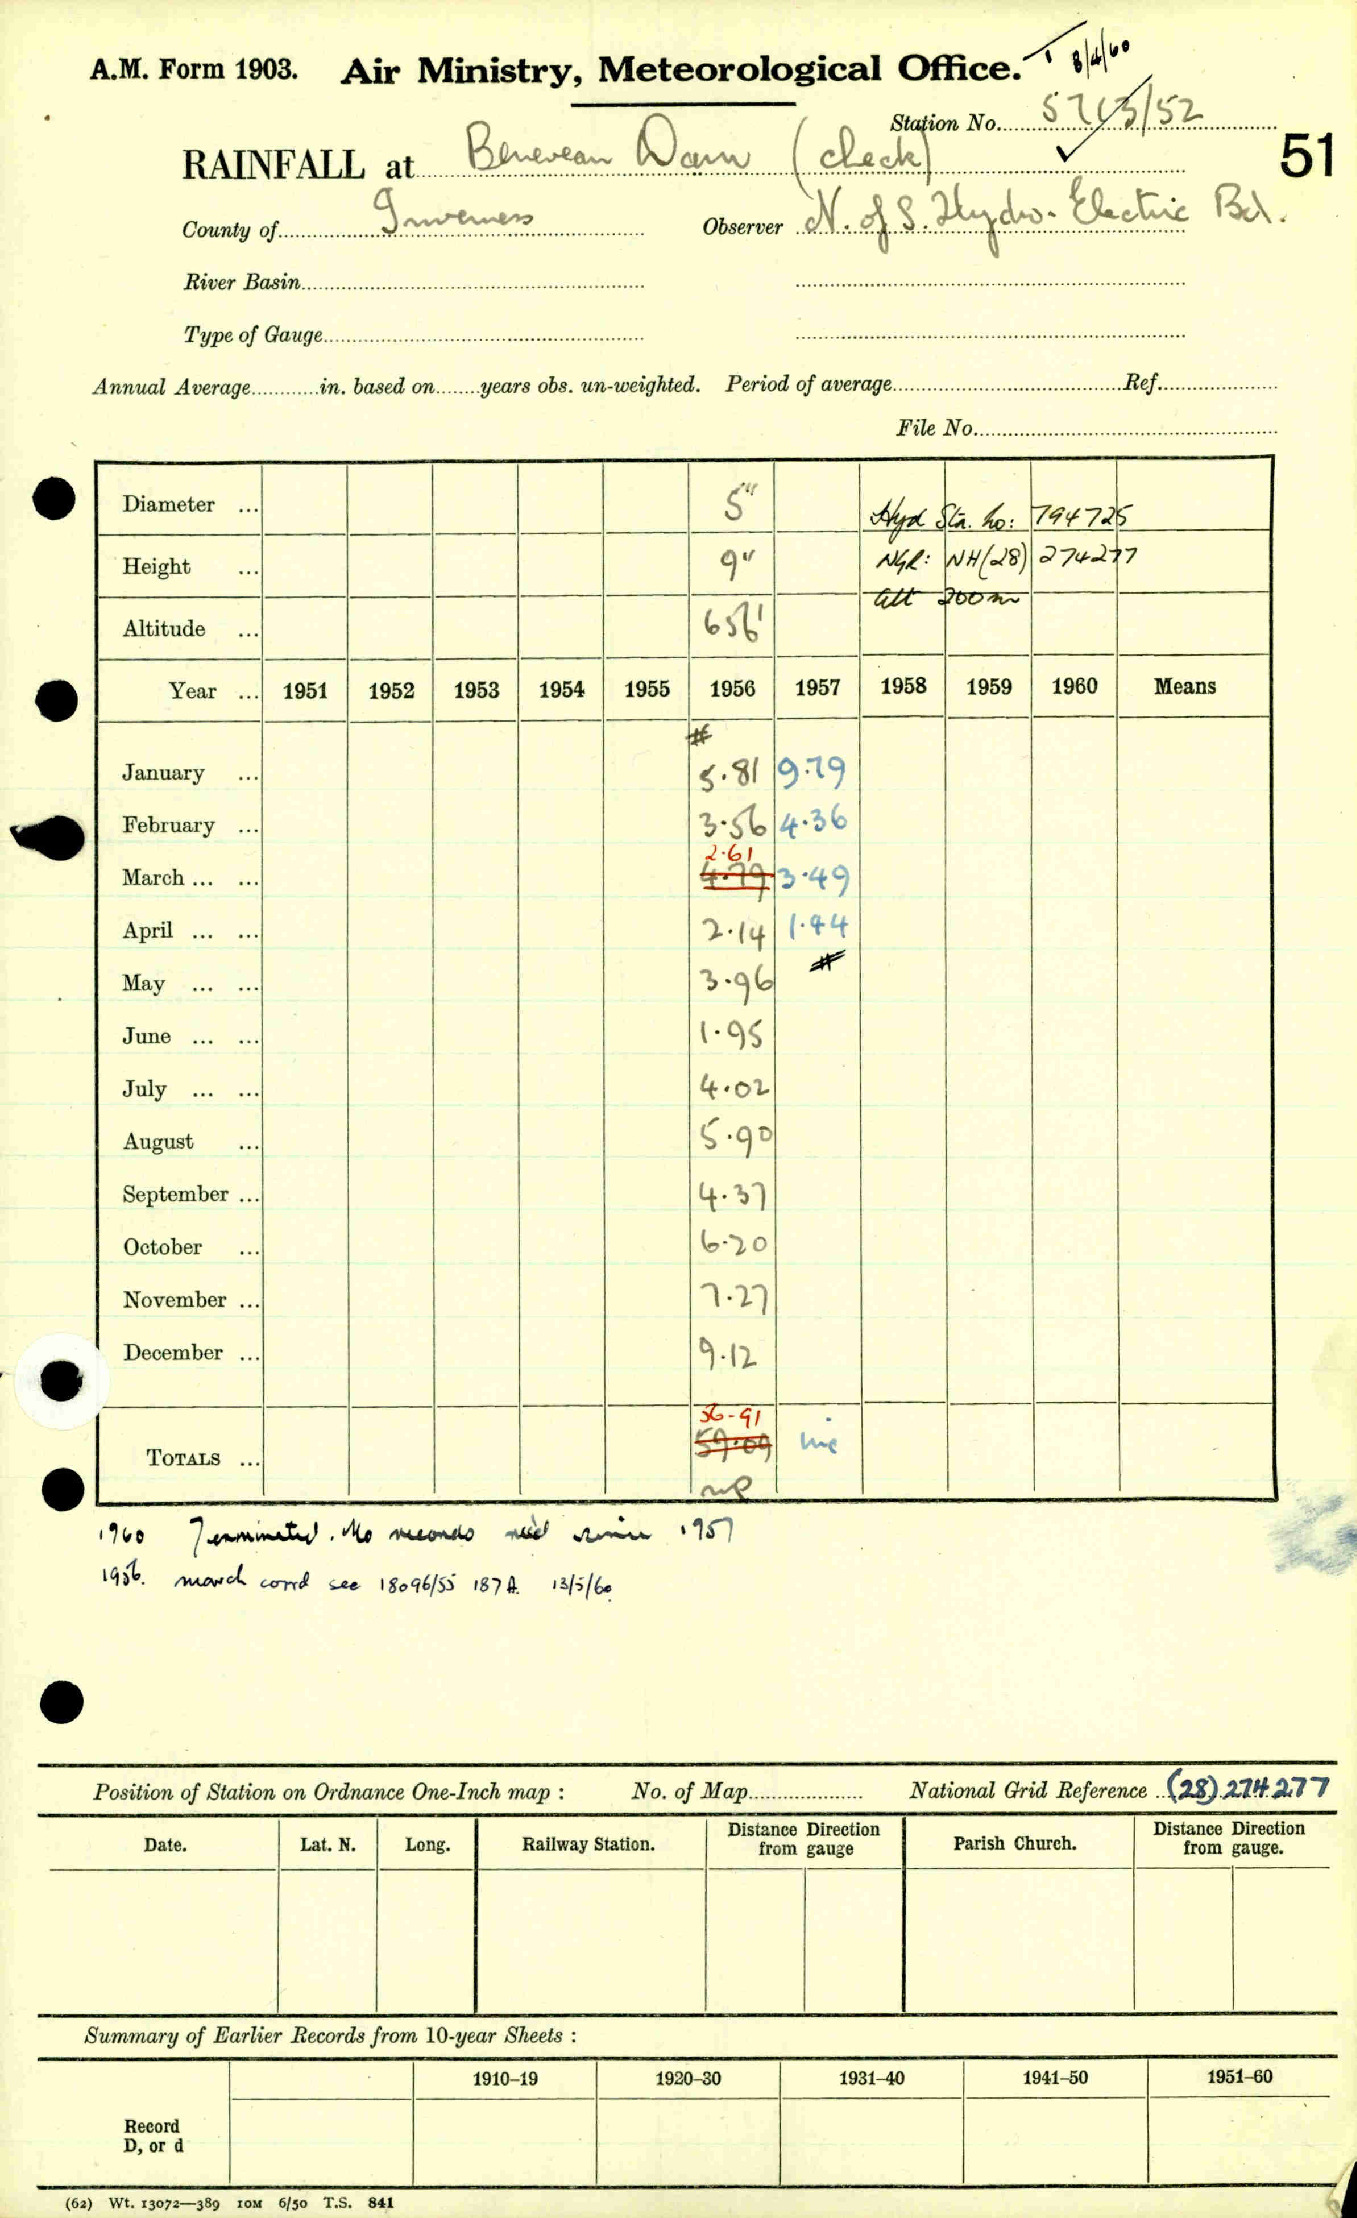 A.M. Form 1903. Air Ministry, Meteorological Office. 8/4/60
Station No. 5713/52
RAINFALL at Benevean Dam (check) 51
County of Inverness Observer N. of S. Hydro-Electric Bd.
River Basin
Type of Gauge
Annual Average in. based on years obs. un-weighted. Period of average Ref.
File No.
Diameter ... 5" Hyd Sta. no: 794725
Height ... 9" NGR: NH(28) 274277
alt 200m
Altitude ... 656'
Year ... 1951 1952 1953 1954 1955 1956 1957 1958 1959 1960 Means
#
January ... 5.81 9.79
February ... 3.56 4.36
2.61
March ... ... 4.79 3.49
April ... ... 2.14 1.44
#
May ... ... 3.96
June ... ... 1.95
July ... ... 4.02
August ... 5.90
September ... 4.37
October ... 6.20
November ... 7.27
December ... 9.12
56.91
TOTALS ... 59.09 inc
1960 Terminated. No records rec'd since 1957
1956. March corrd see 18096/55 187A. 13/5/60
Position of Station on Ordnance One-Inch map : No. of Map National Grid Reference (28) 274277
Date. Lat. N. Long. Railway Station. Distance Direction from gauge Parish Church. Distance Direction from gauge.
Summary of Earlier Records from 10-year Sheets :
1910–19 1920–30 1931–40 1941–50 1951–60
Record
D, or d
(62) Wt. 13072—389 10M 6/50 T.S. 841